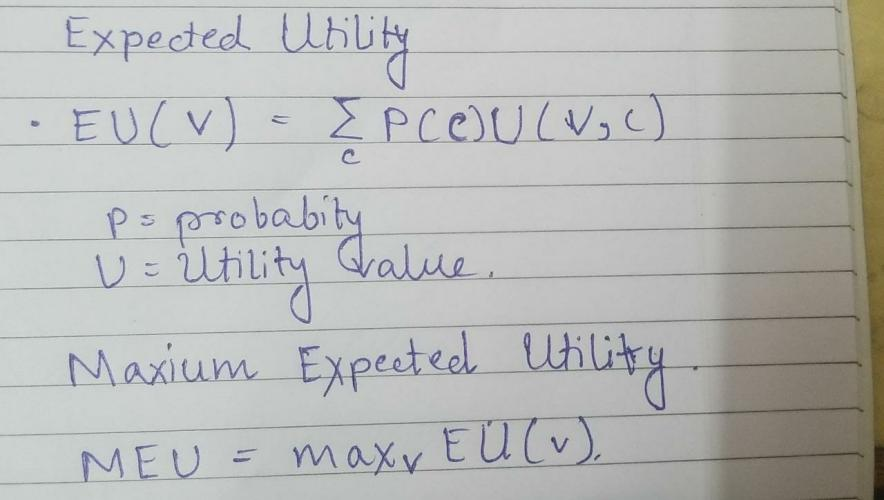 Expected Utility
· EU(V) = ∑ P(C)U(V,C)
c
P = probabity
U = Utility Value.
Maxium Expected Utility.
MEU = maxᵥ EU(v).